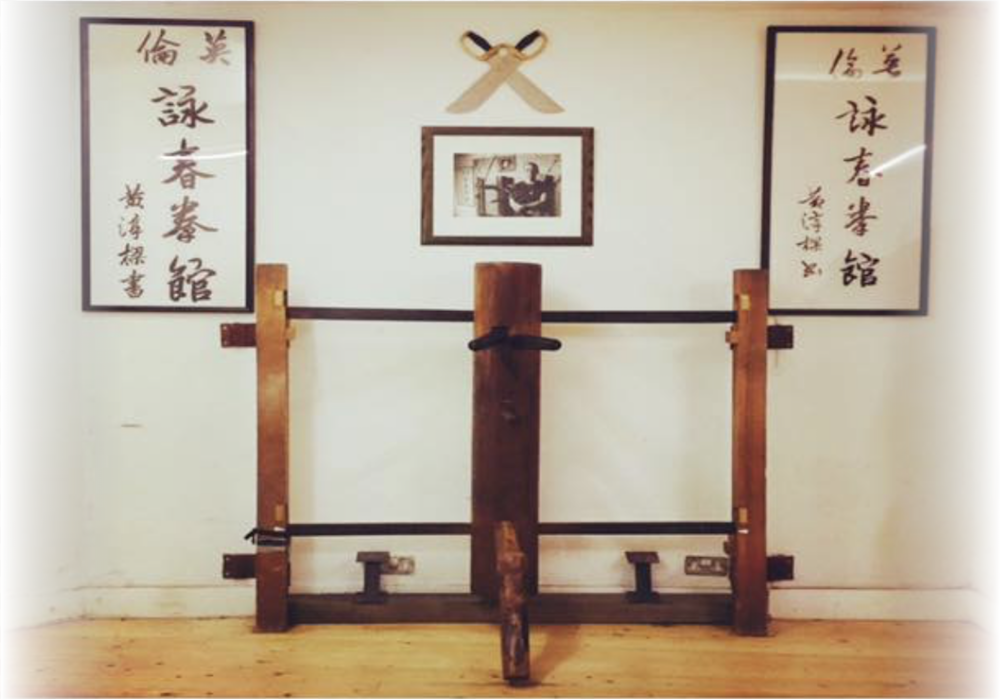 英倫
詠春拳館
黃淳樑書
英倫
詠春拳館
黃淳樑